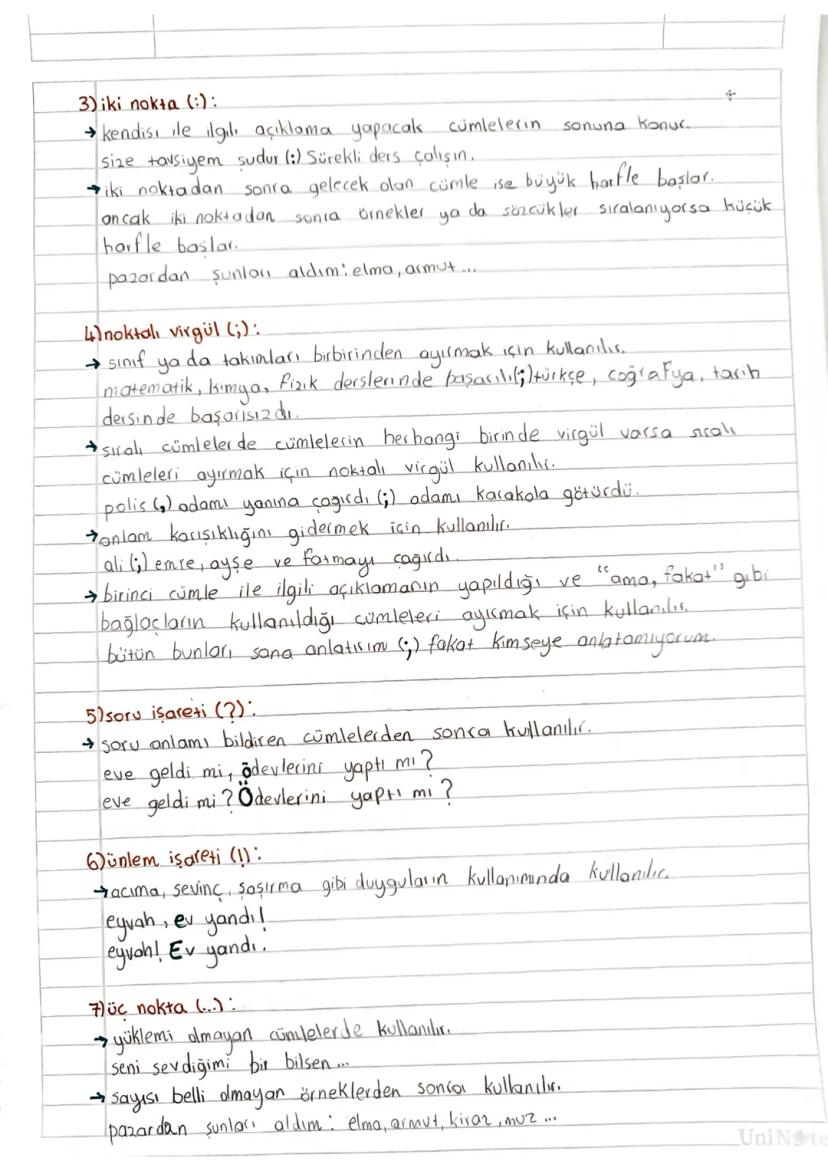 3) iki nokta (:):
→ kendisi ile ilgili açıklama yapacak cümlelerin sonuna konur.
size tavsiyem şudur (:) Sürekli ders çalışın.
→ iki noktadan sonra gelecek olan cümle ise büyük harfle başlar.
ancak iki noktadan sonra örnekler ya da sözcükler sıralanıyorsa küçük
harfle başlar.
pazardan şunları aldım: elma, armut...
4) noktalı virgül (;):
→ sınıf ya da takımları birbirinden ayırmak için kullanılır.
matematik, kimya, fizik derslerinde başarılı(;) türkçe, coğrafya, tarih
dersinde başarısızdı.
→ sıralı cümlelerde cümlelerin herhangi birinde virgül varsa sıralı
cümleleri ayırmak için noktalı virgül kullanılır.
polis (,) adamı yanına çagırdı (;) adamı karakola götürdü.
→ anlam karışıklığını gidermek için kullanılır.
ali (;) emre, ayşe ve fatmayı çagırdı.
→ birinci cümle ile ilgili açıklamanın yapıldığı ve "ama, fakat" gibi
bağlaçların kullanıldığı cümleleri ayırmak için kullanılır.
bütün bunları sana anlatırım (;) fakat kimseye anlatamıyorum.
5) soru işareti (?):
→ soru anlamı bildiren cümlelerden sonra kullanılır.
eve geldi mi, ödevlerini yaptı mı?
eve geldi mi? Ödevlerini yaptı mı?
6) ünlem işareti (!):
→ acıma, sevinç, şaşırma gibi duyguların kullanımında kullanılır
eyvah, ev yandı!
eyvah! Ev yandı.
7) üç nokta (...):
→ yüklemi olmayan cümlelerde kullanılır.
seni sevdiğimi bir bilsen...
→ sayısı belli olmayan örneklerden sonra kullanılır.
pazardan şunları aldım: elma, armut, kiraz, muz ...
UniNote